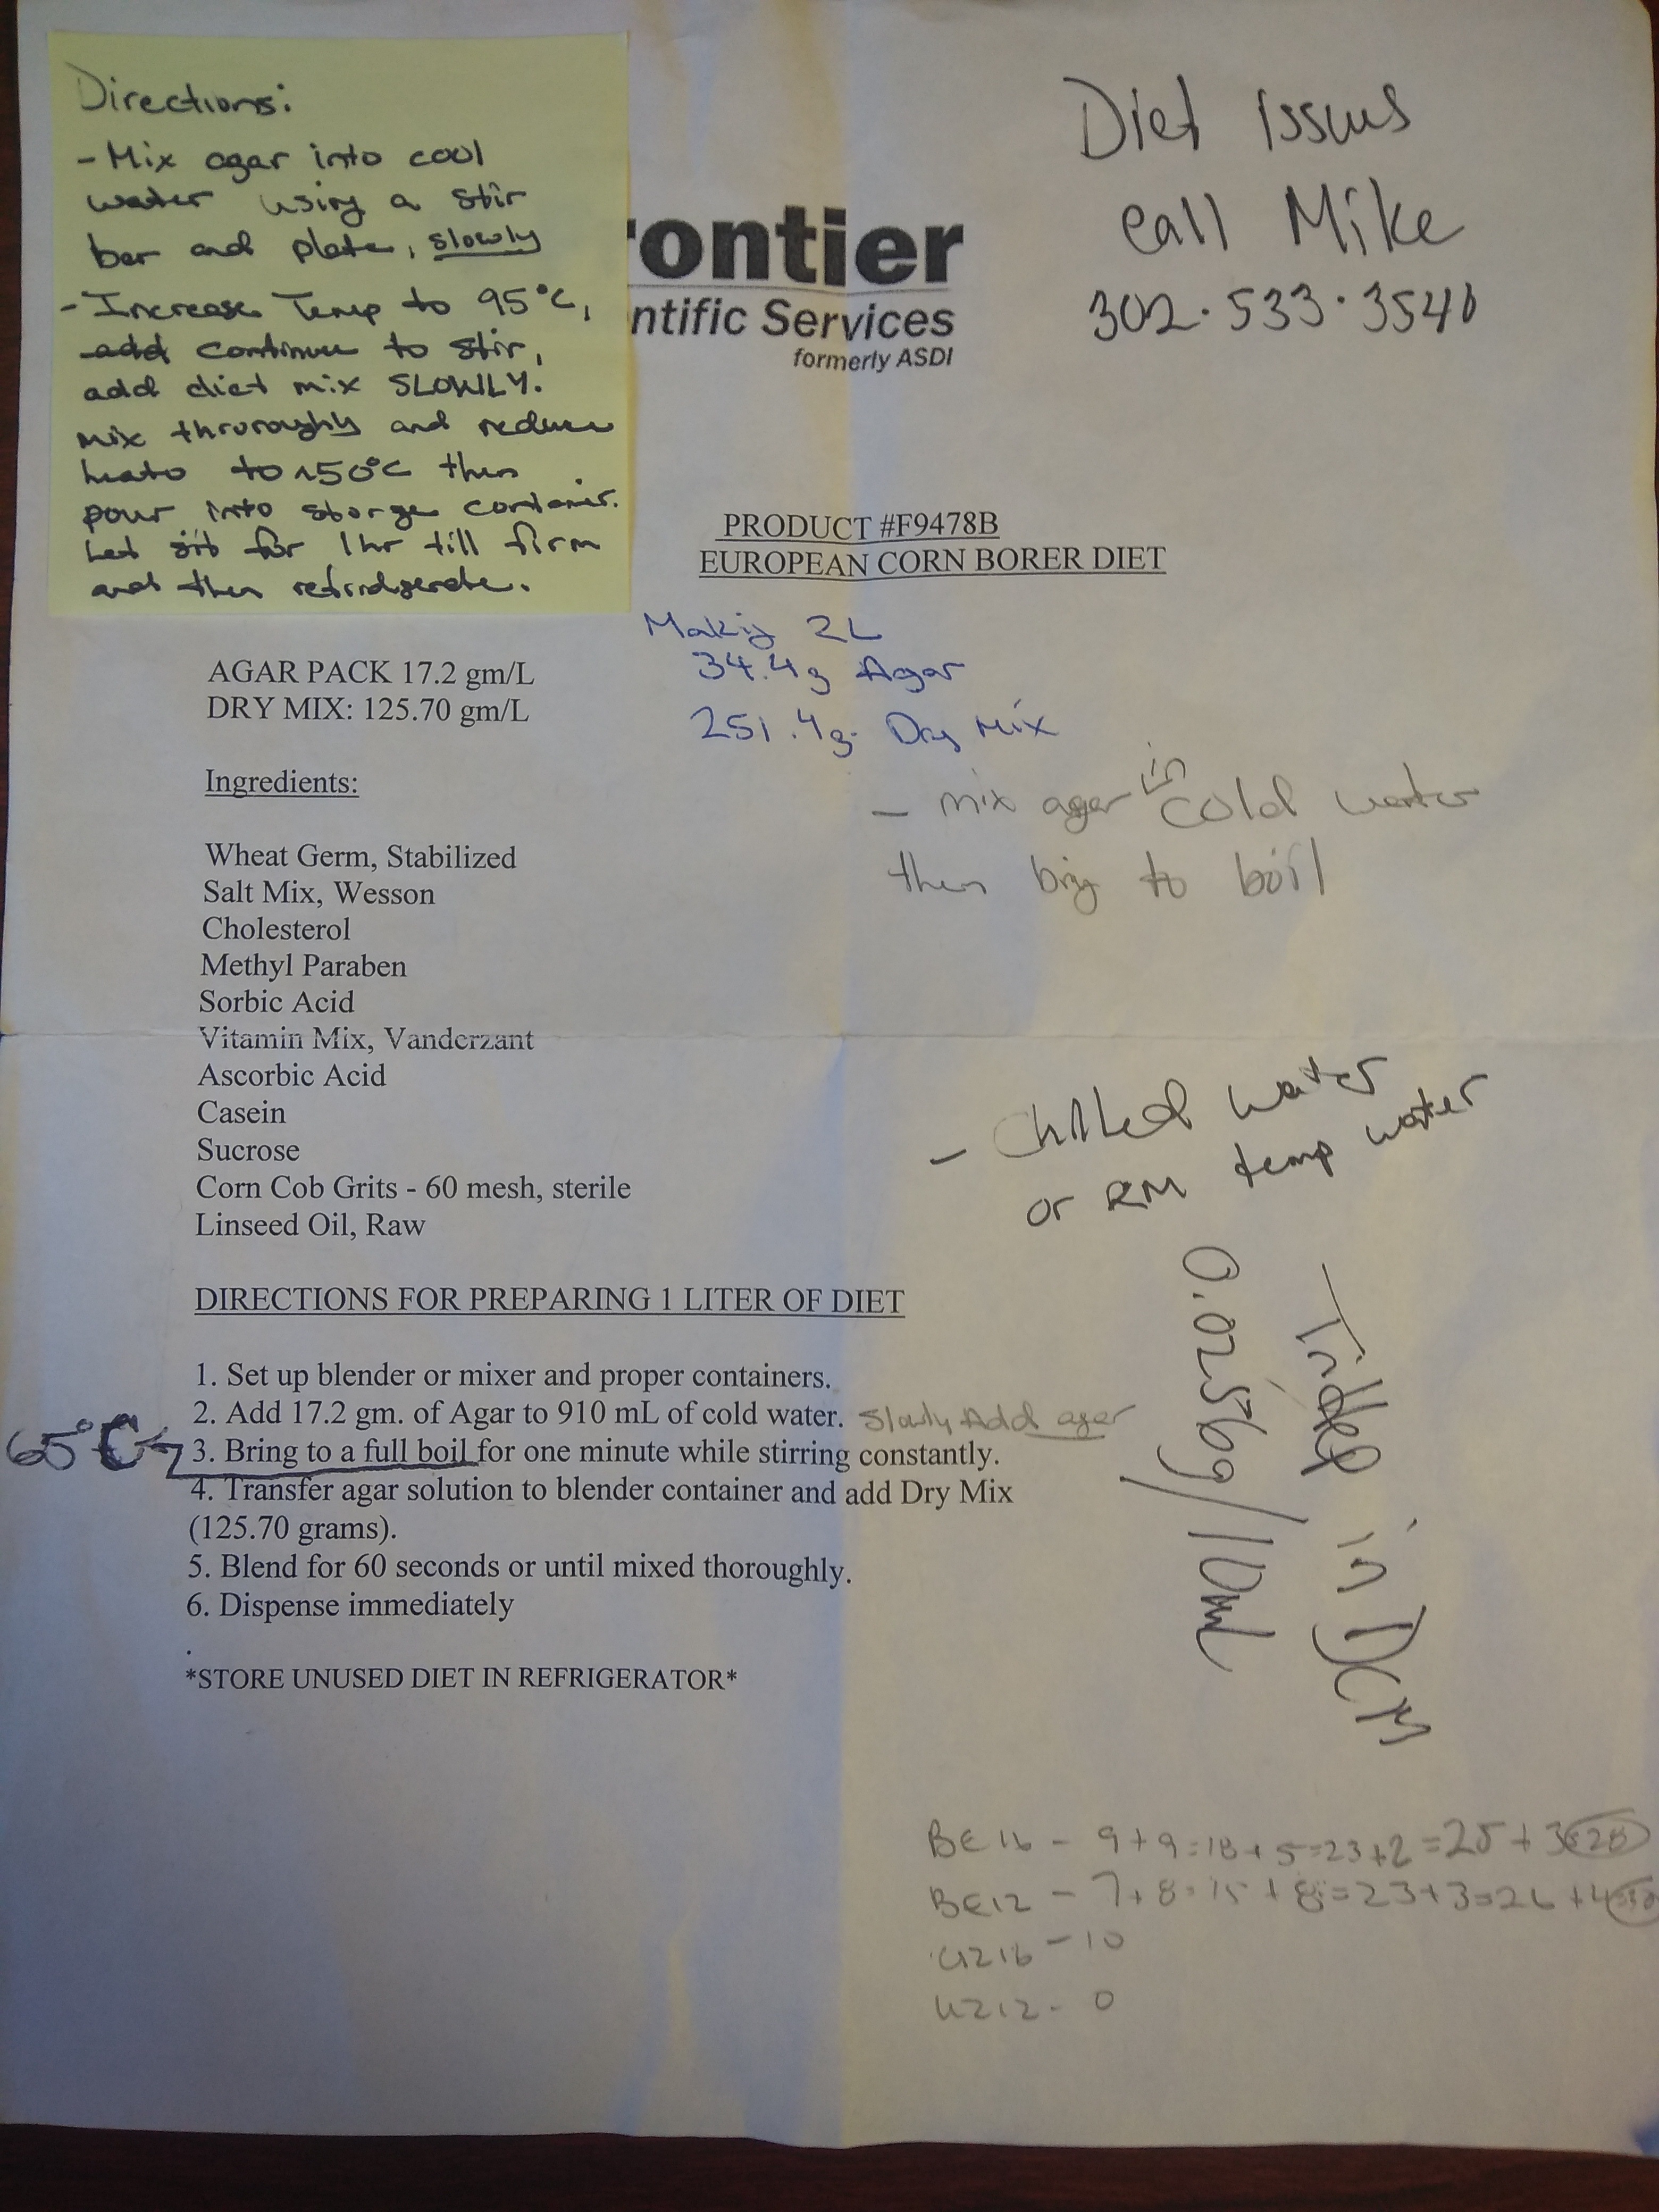 Directions:
- Mix agar into cool
water using a stir
bar and plate, slowly
- Increase Temp to 95°C,
add continue to stir,
add diet mix SLOWLY.
mix thouroughly and reduce
heato to ~50°C then
pour into storge container.
Let sit for 1hr till firm
and then refridgerate.
Diet Issus
Call Mike
302.533.3546
ontier
ntific Services
formerly ASDI
PRODUCT #F9478B
EUROPEAN CORN BORER DIET
Making 2L
34.4g Agar
251.4g. Dry Mix
AGAR PACK 17.2 gm/L
DRY MIX: 125.70 gm/L
- mix agar in cold water
then bring to boil
Ingredients:
Wheat Germ, Stabilized
Salt Mix, Wesson
Cholesterol
Methyl Paraben
Sorbic Acid
Vitamin Mix, Vanderzant
Ascorbic Acid
Casein
Sucrose
Corn Cob Grits - 60 mesh, sterile
Linseed Oil, Raw
- Chilled water
or RM temp water
DIRECTIONS FOR PREPARING 1 LITER OF DIET
1. Set up blender or mixer and proper containers.
2. Add 17.2 gm. of Agar to 910 mL of cold water. Slowly Add agar
65°C
3. Bring to a full boil for one minute while stirring constantly.
4. Transfer agar solution to blender container and add Dry Mix
(125.70 grams).
5. Blend for 60 seconds or until mixed thoroughly.
6. Dispense immediately
*STORE UNUSED DIET IN REFRIGERATOR*
0.0256g
/10mL
in
BE16 - 9+9=18+5=23+2=25+3=28
BE12 - 7+8=15+8=23+3=26+4=30
UZ16 - 10
UZ12 - 0